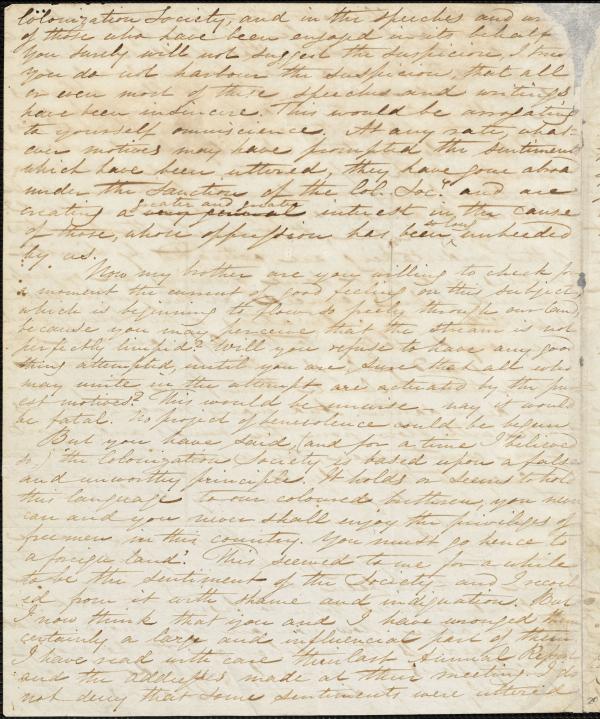 Colonization Society, and in the speeches and
of those who have been engaged in its behalf
You surely will not suggest the suspicion, I trust
you do not harbour the suspicion, that all
or even most of these speeches and writings
have been insincere. This would be arrogating
to yourself omniscience. At any rate, what-
ever motives may have prompted the sentiments
which have been uttered, they have gone abroad
under the sanction of the Col. Soc.y and are
creating a greater and greater interest in the cause
of those, whose oppression has been so long unheeded
by us.
Now my brother are you willing to check for
a moment the current of good feeling on this subject,
which is beginning to flow so freely through our land
because you may perceive that the stream is not
perfectly limpid? Will you refuse to have any good
thing attempted, until you are sure that all who
may unite in the attempt are actuated by the pur-
est motives? This would be unwise – nay it would
be fatal. No project of benevolence could be begun
But you have said, (and for a time I believed
so) the Colonization Society is based upon a false
and unworthy principle. It holds or seems to hold
this language to our coloured brethren, you never
can and you never shall enjoy the privileges of
freemen in this country. You must go hence to
a foreign land. This seemed to me for a while
to be the sentiment of the Society and I recoil
ed from it with shame and indignation. But
I now think that you and I have wronged them
certainly a large and influencial part of them
I have read with care their last Annual Report
and the addresses made at their meeting. I do
not deny that some sentiments were uttered